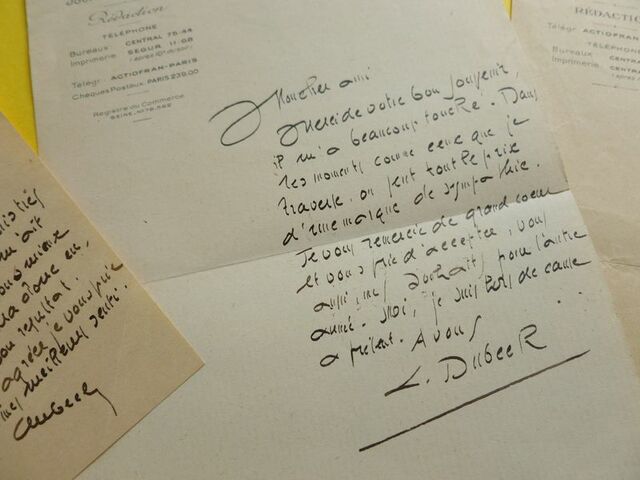 Rédaction
TÉLÉPHONE
Bureaux CENTRAL 75-44
Imprimerie SÉGUR 11-98
(après 10h du soir)
Télégr ACTIOFRAN-PARIS
Chèques Postaux PARIS 239.00
Registre du Commerce
SEINE, N° 76.562
Mon cher ami
Merci de votre bon souvenir,
il m'a beaucoup touché. Dans
les moments comme ceux que je
traverse on sent tout le prix
d'une marque de sympathie.
Je vous remercie de grand coeur
et vous prie d'accepter, vous
aussi, mes souhaits pour l'autre
année. Moi, je suis hors de cause
à présent. A vous
L. Dubeer
RÉDACTIO
TÉLÉPHONE
Bureaux
Imprimerie
Télégr
m'ait
mieux
résultat.
je vous prie
mes meilleurs